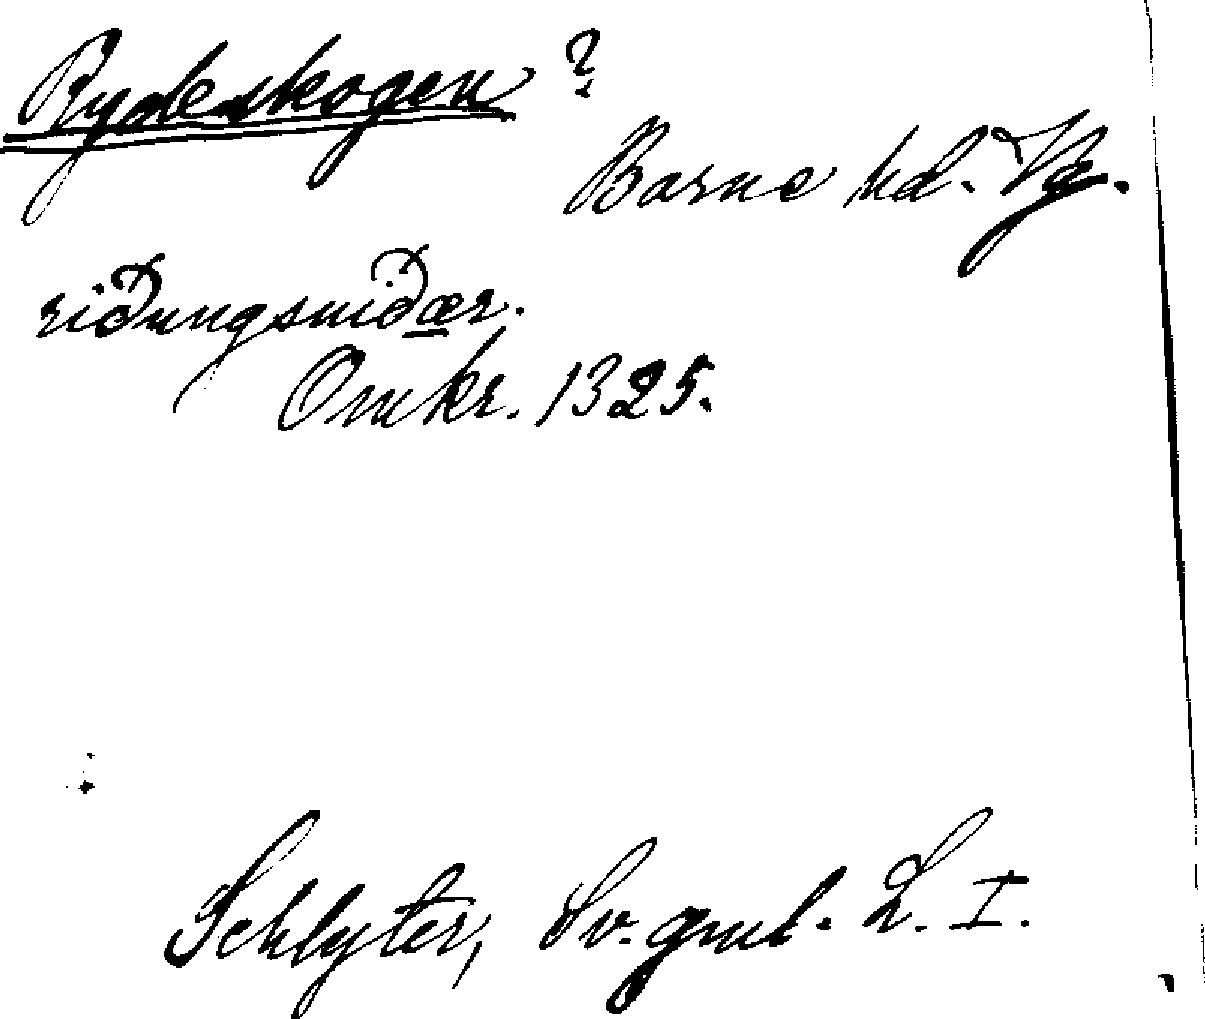 Rydeskogen ?
Barne hd. Vg.
riðungsniðær.
Omkr. 1325.
Schlyter, Sv. gml. L. I.